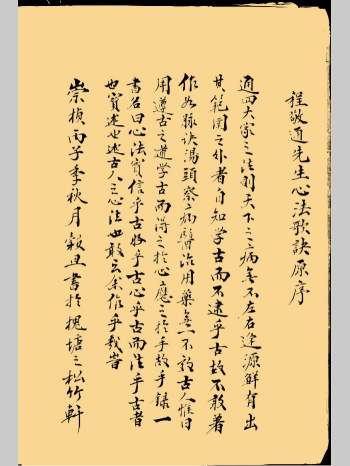 程敬通先生心法歌訣原序
通四大家之法則天下之病無不左右逢源鮮有出
其範圍之外者自知学古而不逮乎古故不敢著
作如脉訣湯頭察病醫治用藥無不報古人惟日
用遵古之道学古而得之於心應之於手故手録一
書名曰心法實信乎古好乎古心乎古而法乎古者
也實述也述古人之心法也敢云余作乎哉旹
崇禎丙子季秋月穀旦書於槐塘之松竹軒